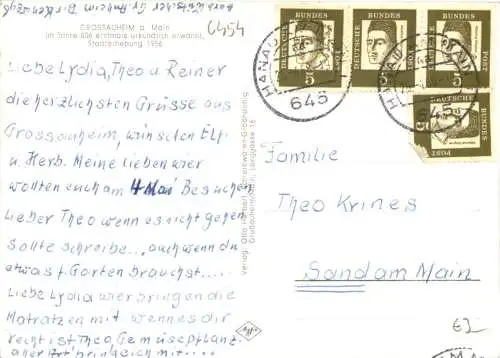 6454
GROSSAUHEIM a. Main
im Jahre 806 erstmals urkundlich erwähnt,
Stadterhebung 1956
Liebe Lydia, Theo u Reiner
die herzlichsten Grüsse aus
Grossauheim, wünschen Elf
u Herb. Meine lieben wier
wollten euch am 4 Mai Besuchen
Lieber Theo wenn es nicht gehen
sollte schreibe... auch wenn du
etwas f. Garten brauchst.....
Liebe Lydia wier bringen die
Matratzen mit wennes dir
recht ist Theo, Gemüsepflanz.
aller Art bringe ich mit....
Verlag: Otto
Großauheim/Main,
DEUTSCHE BUNDESPOST
5
DEUTSCHE BUNDESPOST
5
DEUTSCHE BUNDESPOST
5
DEUTSCHE BUNDESPOST
5
HANAU
645
HANAU
645
Familie
Theo Krines
Sandam Main
E2